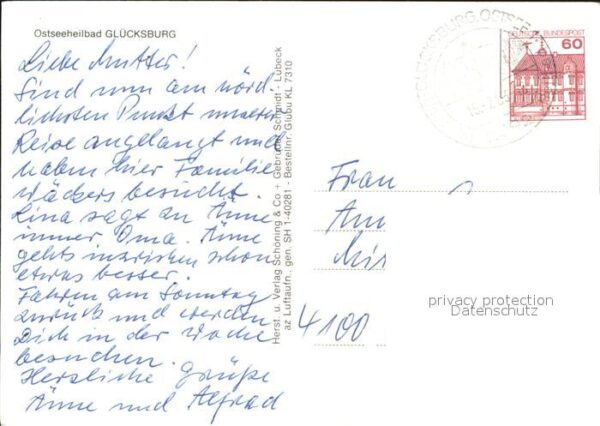 Ostseeheilbad GLÜCKSBURG
Liebe Mutter!
Sind nun am nörd-
lichsten Punkt unserer
Reise angelangt und
haben hier Familie
besucht.
Lina sagt zu Änne
immer Oma. Änne
gehts inzwischen schon
etwas besser.
Fahren am Sonntag
zurück und werden
Dich in der Woche
besuchen.
Herzliche Grüße
Änne und Alfred
Herst. u. Verlag Schöning & Co + Gebrüder Schmidt - Lübeck
az Luftaufn., gen. SH 1-40281 - Bestellnr. Glübu KL 7310
GLÜCKSBURG, OSTSEE
DEUTSCHE BUNDESPOST
60
Frau
Am
4100
privacy protection
Datenschutz